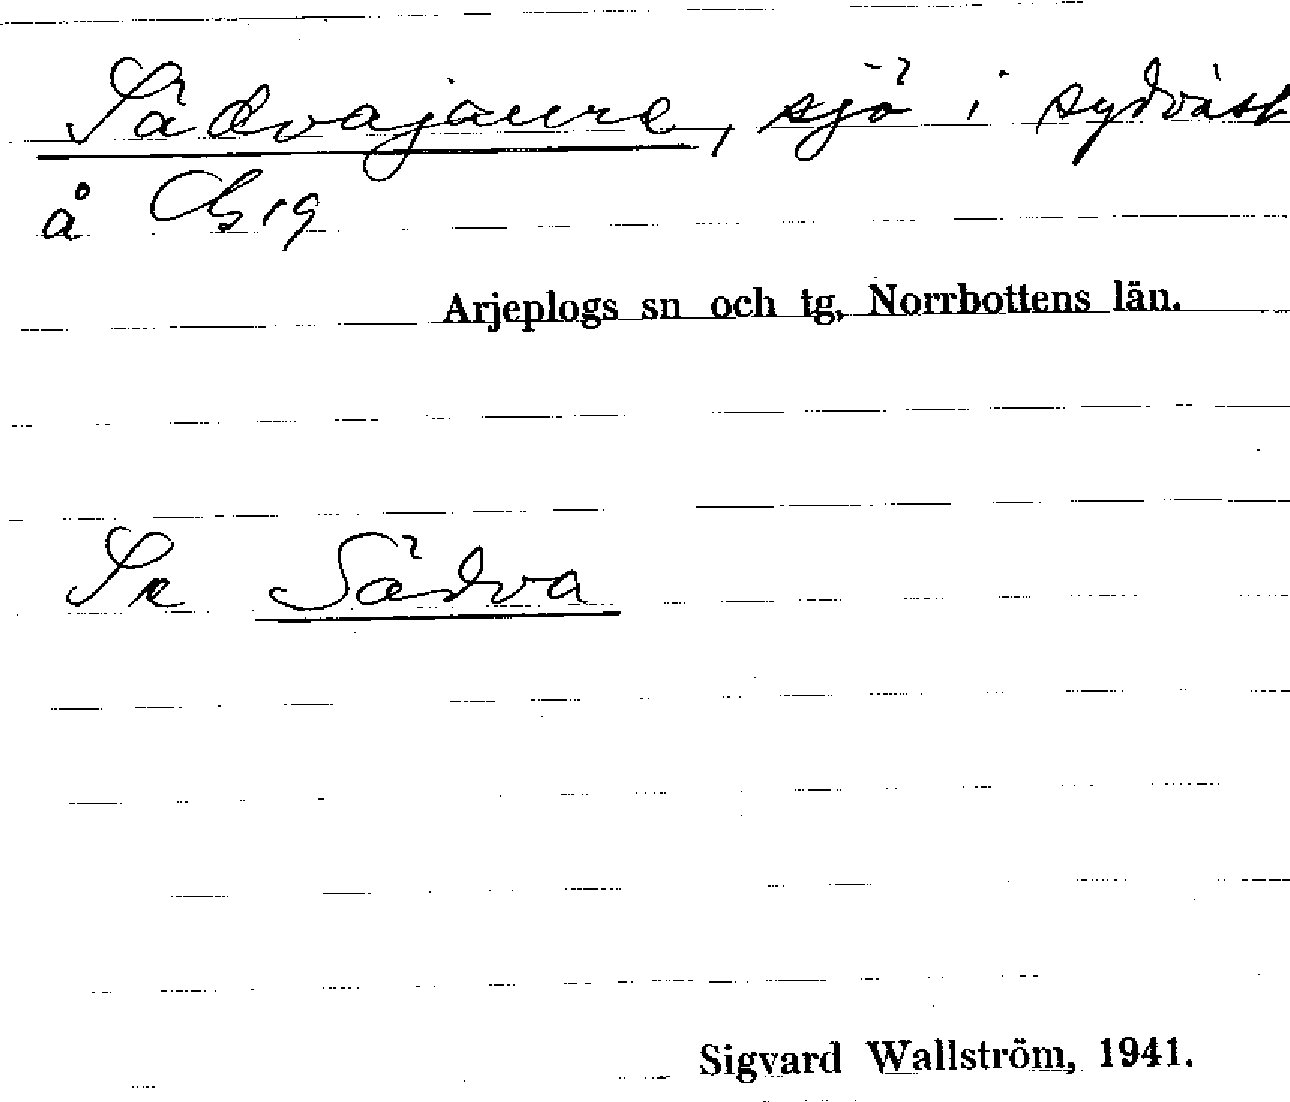 Sädvajaure, sjö i sydväst
å Gb 19
Arjeplogs sn och tg, Norrbottens län.
Se Sädva
Sigvard Wallström, 1941.